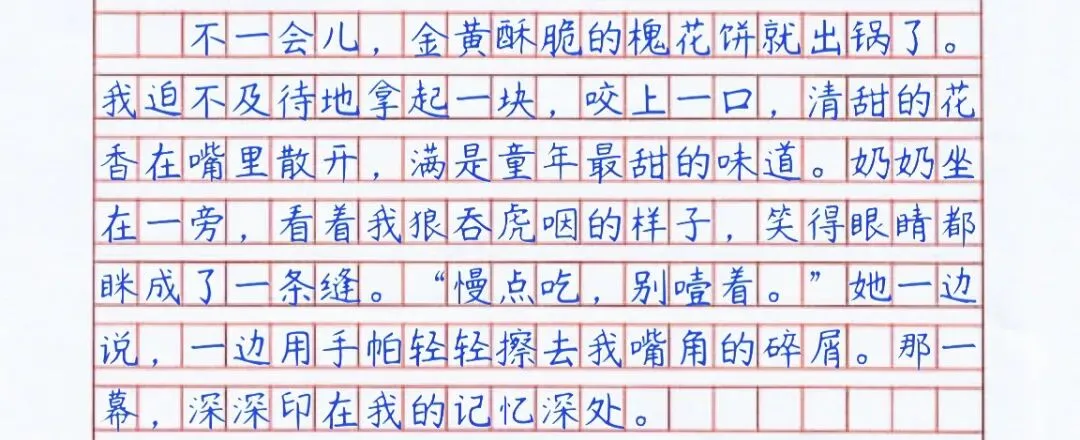 不一会儿，金黄酥脆的槐花饼就出锅了。
我迫不及待地拿起一块，咬上一口，清甜的花
香在嘴里散开，满是童年最甜的味道。奶奶坐
在一旁，看着我狼吞虎咽的样子，笑得眼睛都
眯成了一条缝。“慢点吃，别噎着。”她一边
说，一边用手帕轻轻擦去我嘴角的碎屑。那一
幕，深深印在我的记忆深处。